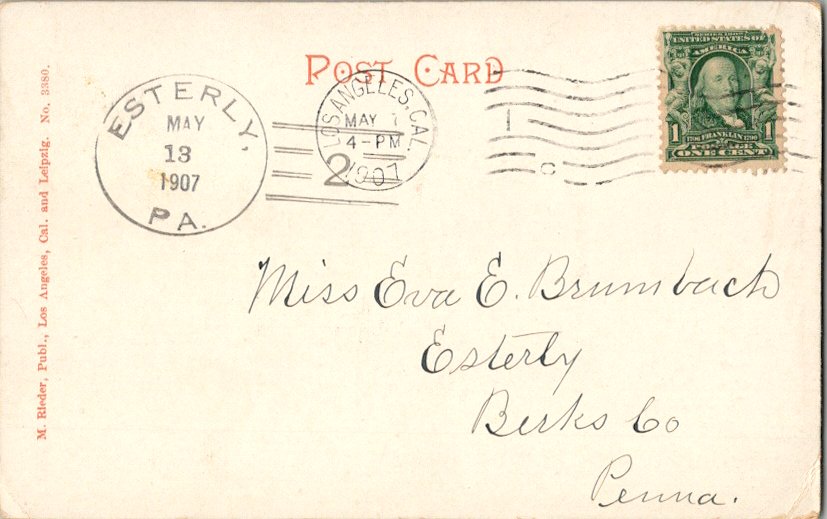 POST CARD
ESTERLY,
MAY
13
1907
PA.
LOS ANGELES, CAL.
MAY 7
4-PM
1907
2
C
SERIES 1902
UNITED STATES OF
AMERICA
1 1706 FRANKLIN 1790 1
POSTAGE
ONE CENT
Miss Eva E. Brumbach
Esterly
Berks Co
Penna.
M. Rieder, Publ., Los Angeles, Cal. and Leipzig. No. 3380.